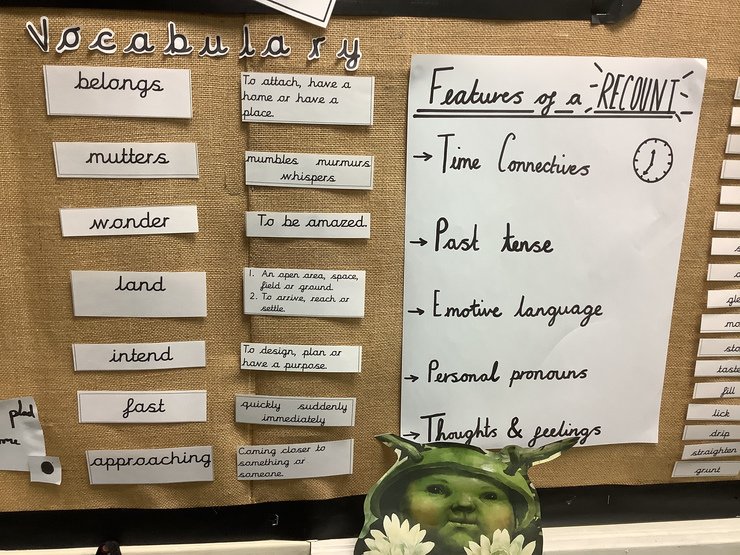 Vocabulary
belongs
To attach, have a
home or have a
place.
mutters
mumbles murmurs
whispers
wonder
To be amazed.
land
1. An open area, space,
field or ground.
2. To arrive, reach or
settle.
intend
To design, plan or
have a purpose.
fast
quickly suddenly
immediately
approaching
Coming closer to
something or
someone.
Features of a RECOUNT
→ Time Connectives
→ Past tense
→ Emotive language
→ Personal pronouns
→ Thoughts & feelings
fill
lick
drip
straighten
grunt